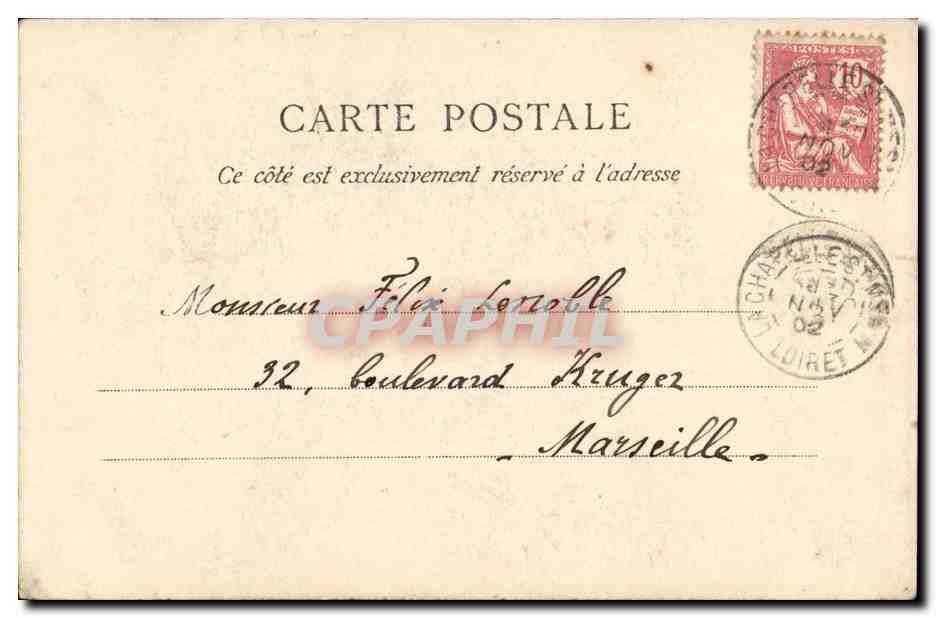 POSTES
10
REPUBLIQUE FRANÇAISE
NOV
02
CARTE POSTALE
Ce côté est exclusivement réservé à l'adresse
LA CHAPELLE ST MESMIN
NOV
02
LOIRET
Monsieur Félix
CPAPHIL
32, boulevard Kruger
- Marseille -